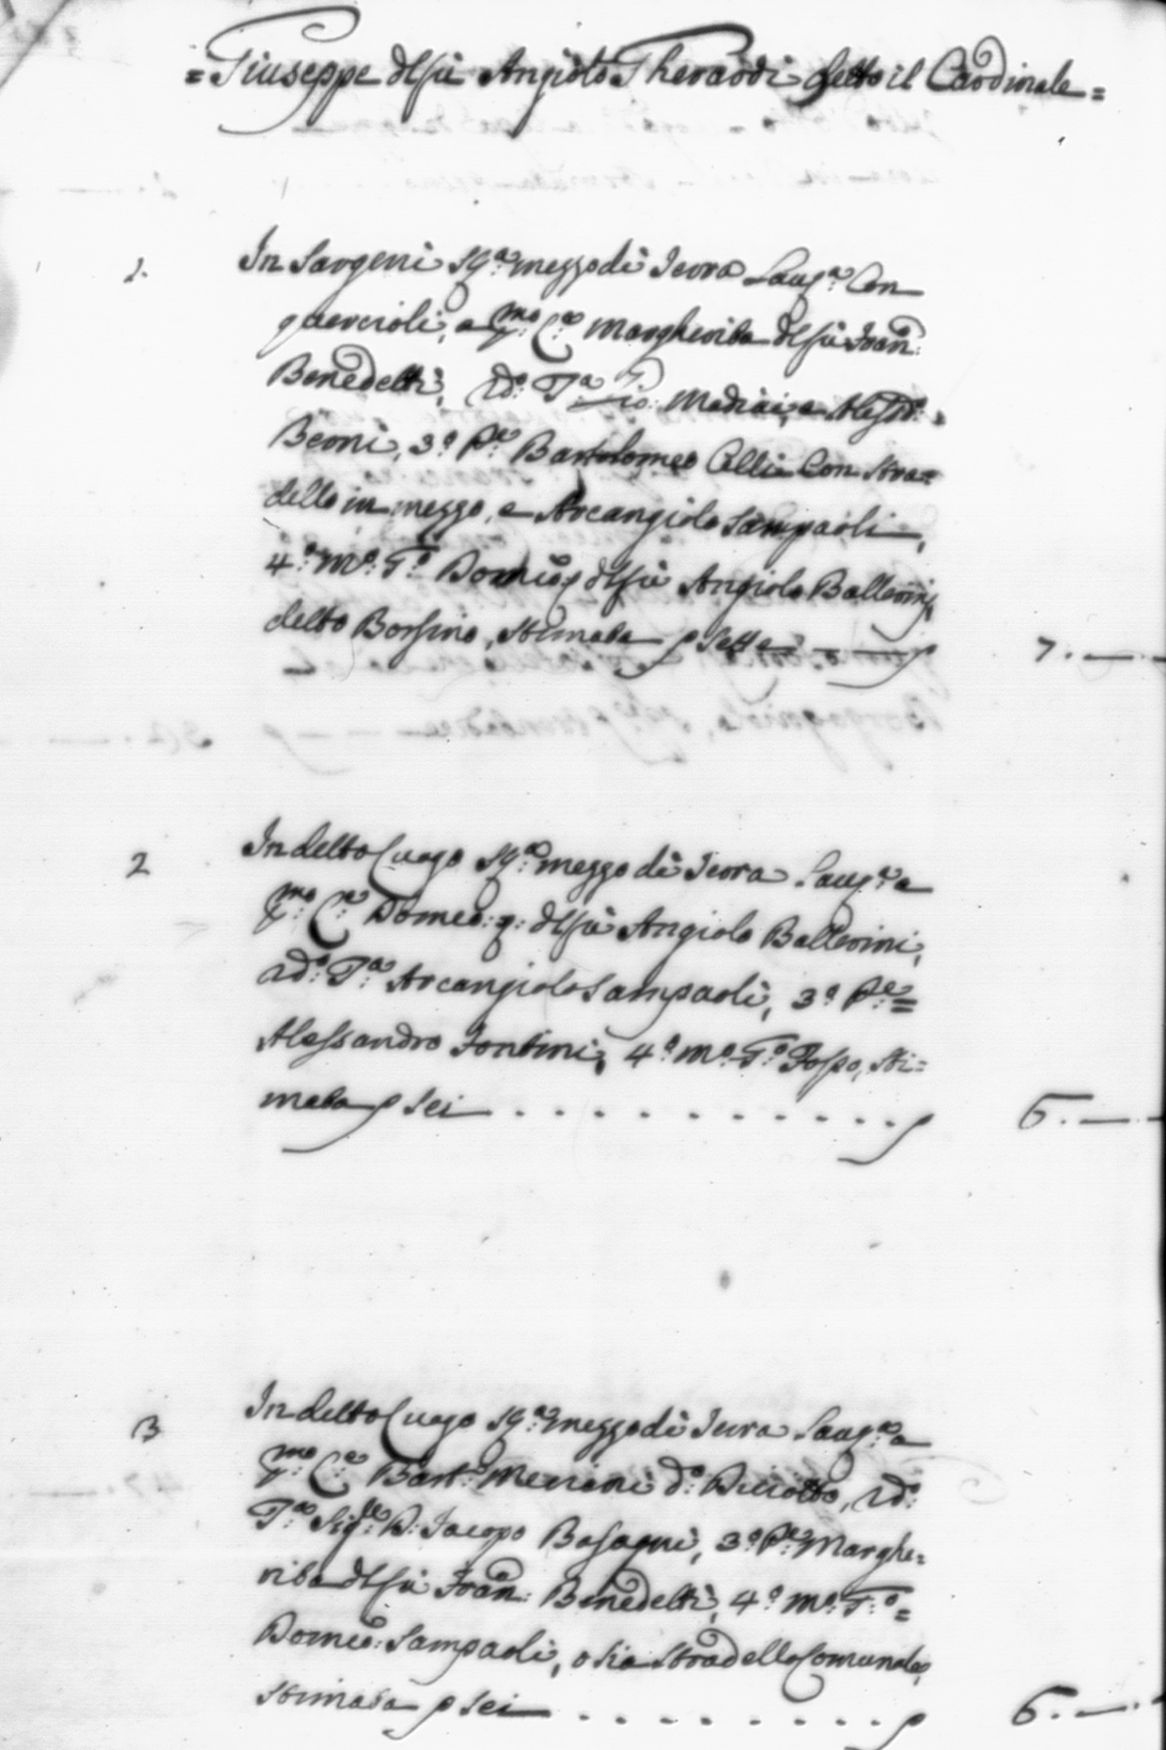 = Giuseppe del fù Angiolo Gherardi detto il Cardinale =
1.
In Sargeni Sq.ª mezzo di Terra Lauq.ª Con
quercioli, a p.mo C.º Margherita del fù Fran:
Benedetti, 2d.º T.ª Gio: Medici, e Aless.º
Beoni, 3.º P.e Bartolomeo Celli Con stra=
dello in mezzo, e Arcangiolo Sampaoli,
4.º M.º T.º Domeo: q: del fù Angiolo Ballerini
detto Borsino, stimata p sette — p 7. —
2
In detto Luogo Sq.ª mezzo di Terra Lauq.ª a
p.mo C.ª Domeo: q: del fù Angiolo Ballerini,
a 2d.º T.ª Arcangiolo Sampaoli, 3.º P.e =
Alessandro Fontini, 4.º M.º T.º Fosso, sti=
mata p sei . . . . . . . . . . . p 6. —
3
In detto Luogo Sq.ª mezzo di Terra Lauq.ª a
p.mo C.º Bart.º Mencioni d.º Riciotto, 2d.º
T.ª Sig.re D. Iacopo Basagni, 3.º P.e Marghe=
rita del fù Fran: Benedetti, 4.º M.º T.º =
Domeo: Sampaoli, o sia stradello Comunale,
stimata p sei . . . . . . . . . p 6. —